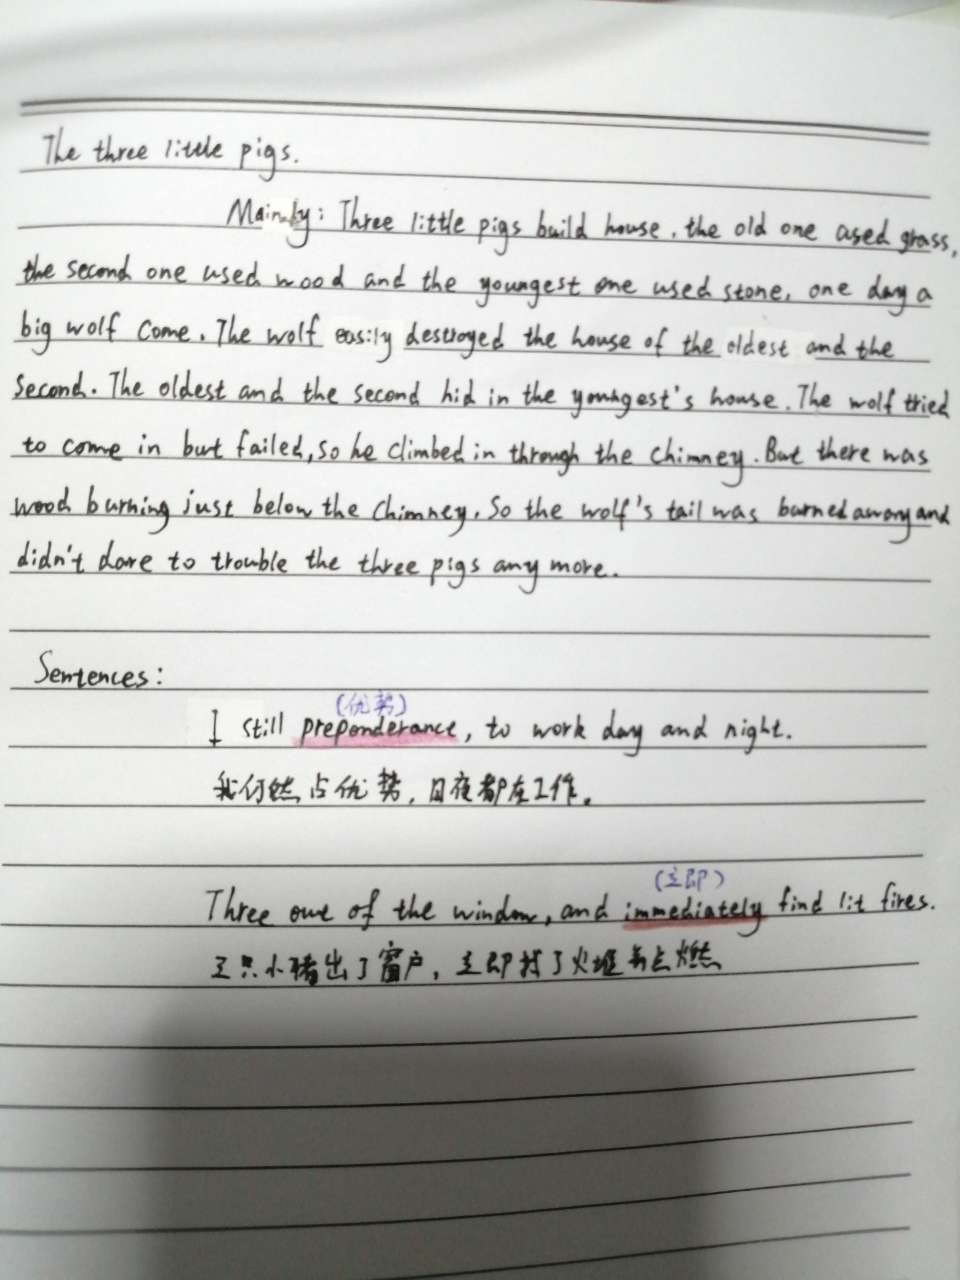 The three little pigs.
Mainly: Three little pigs build house, the old one used grass,
the second one used wood and the youngest one used stone, one day a
big wolf come. The wolf easily destroyed the house of the oldest and the
Second. The oldest and the second hid in the youngest's house. The wolf tried
to come in but failed, so he climbed in through the chimney. But there was
wood burning just below the chimney. So the wolf's tail was burned away and
didn't dare to trouble the three pigs any more.
Sentences:
(优势)
I still preponderance, to work day and night.
我仍然占优势,日夜都在工作。
(立即)
Three out of the window, and immediately find lit fires.
三只小猪出了窗户,立即找了火堆去点燃